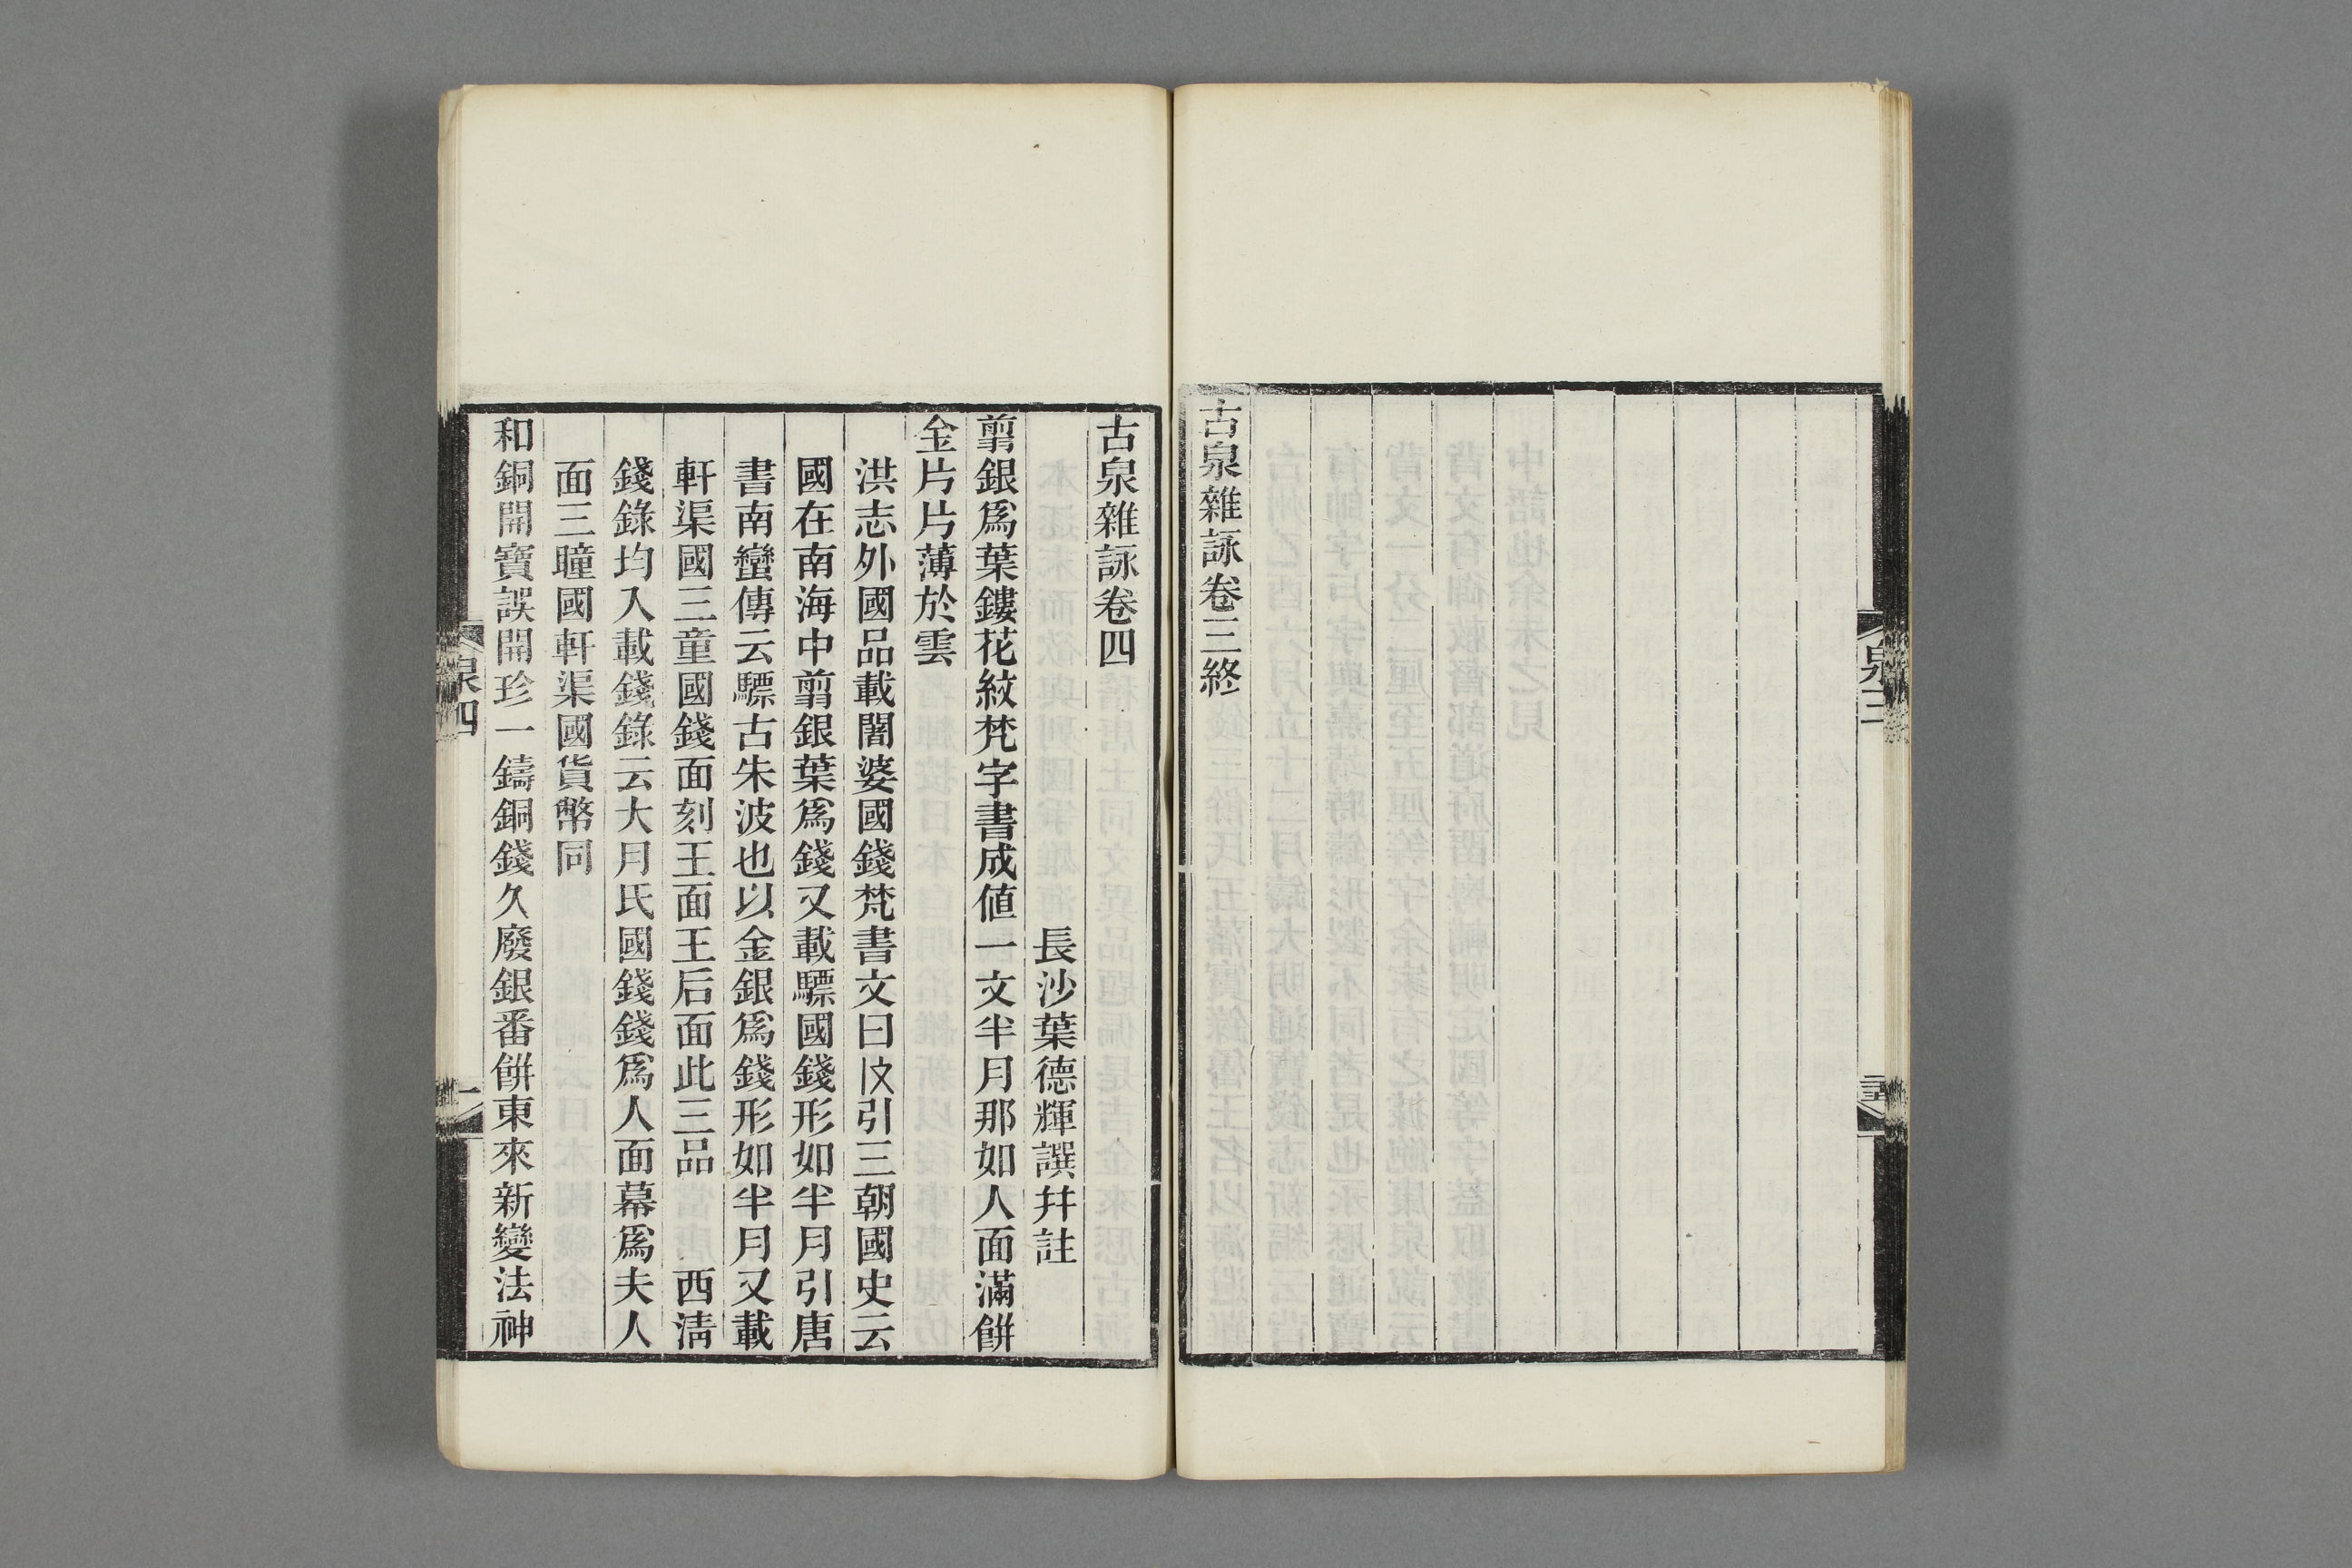 古泉雜詠卷三終
泉三
古泉雜詠卷四
長沙葉德輝譔幷註
翦銀爲葉鏤花紋梵字書成值一文半月那如人面滿餅
金片片薄於雲
洪志外國品載闍婆國錢梵書文曰引三朝國史云
國在南海中翦銀葉爲錢又載驃國錢形如半月引唐
書南蠻傳云驃古朱波也以金銀爲錢形如半月又載
軒渠國三童國錢面刻王面王后面此三品 西淸
錢錄均入載錢錄云大月氏國錢錢爲人面幕爲夫人
面三瞳國軒渠國貨幣同
和銅開寶誤開珍一鑄銅錢久廢銀番餅東來新變法神
泉四
一